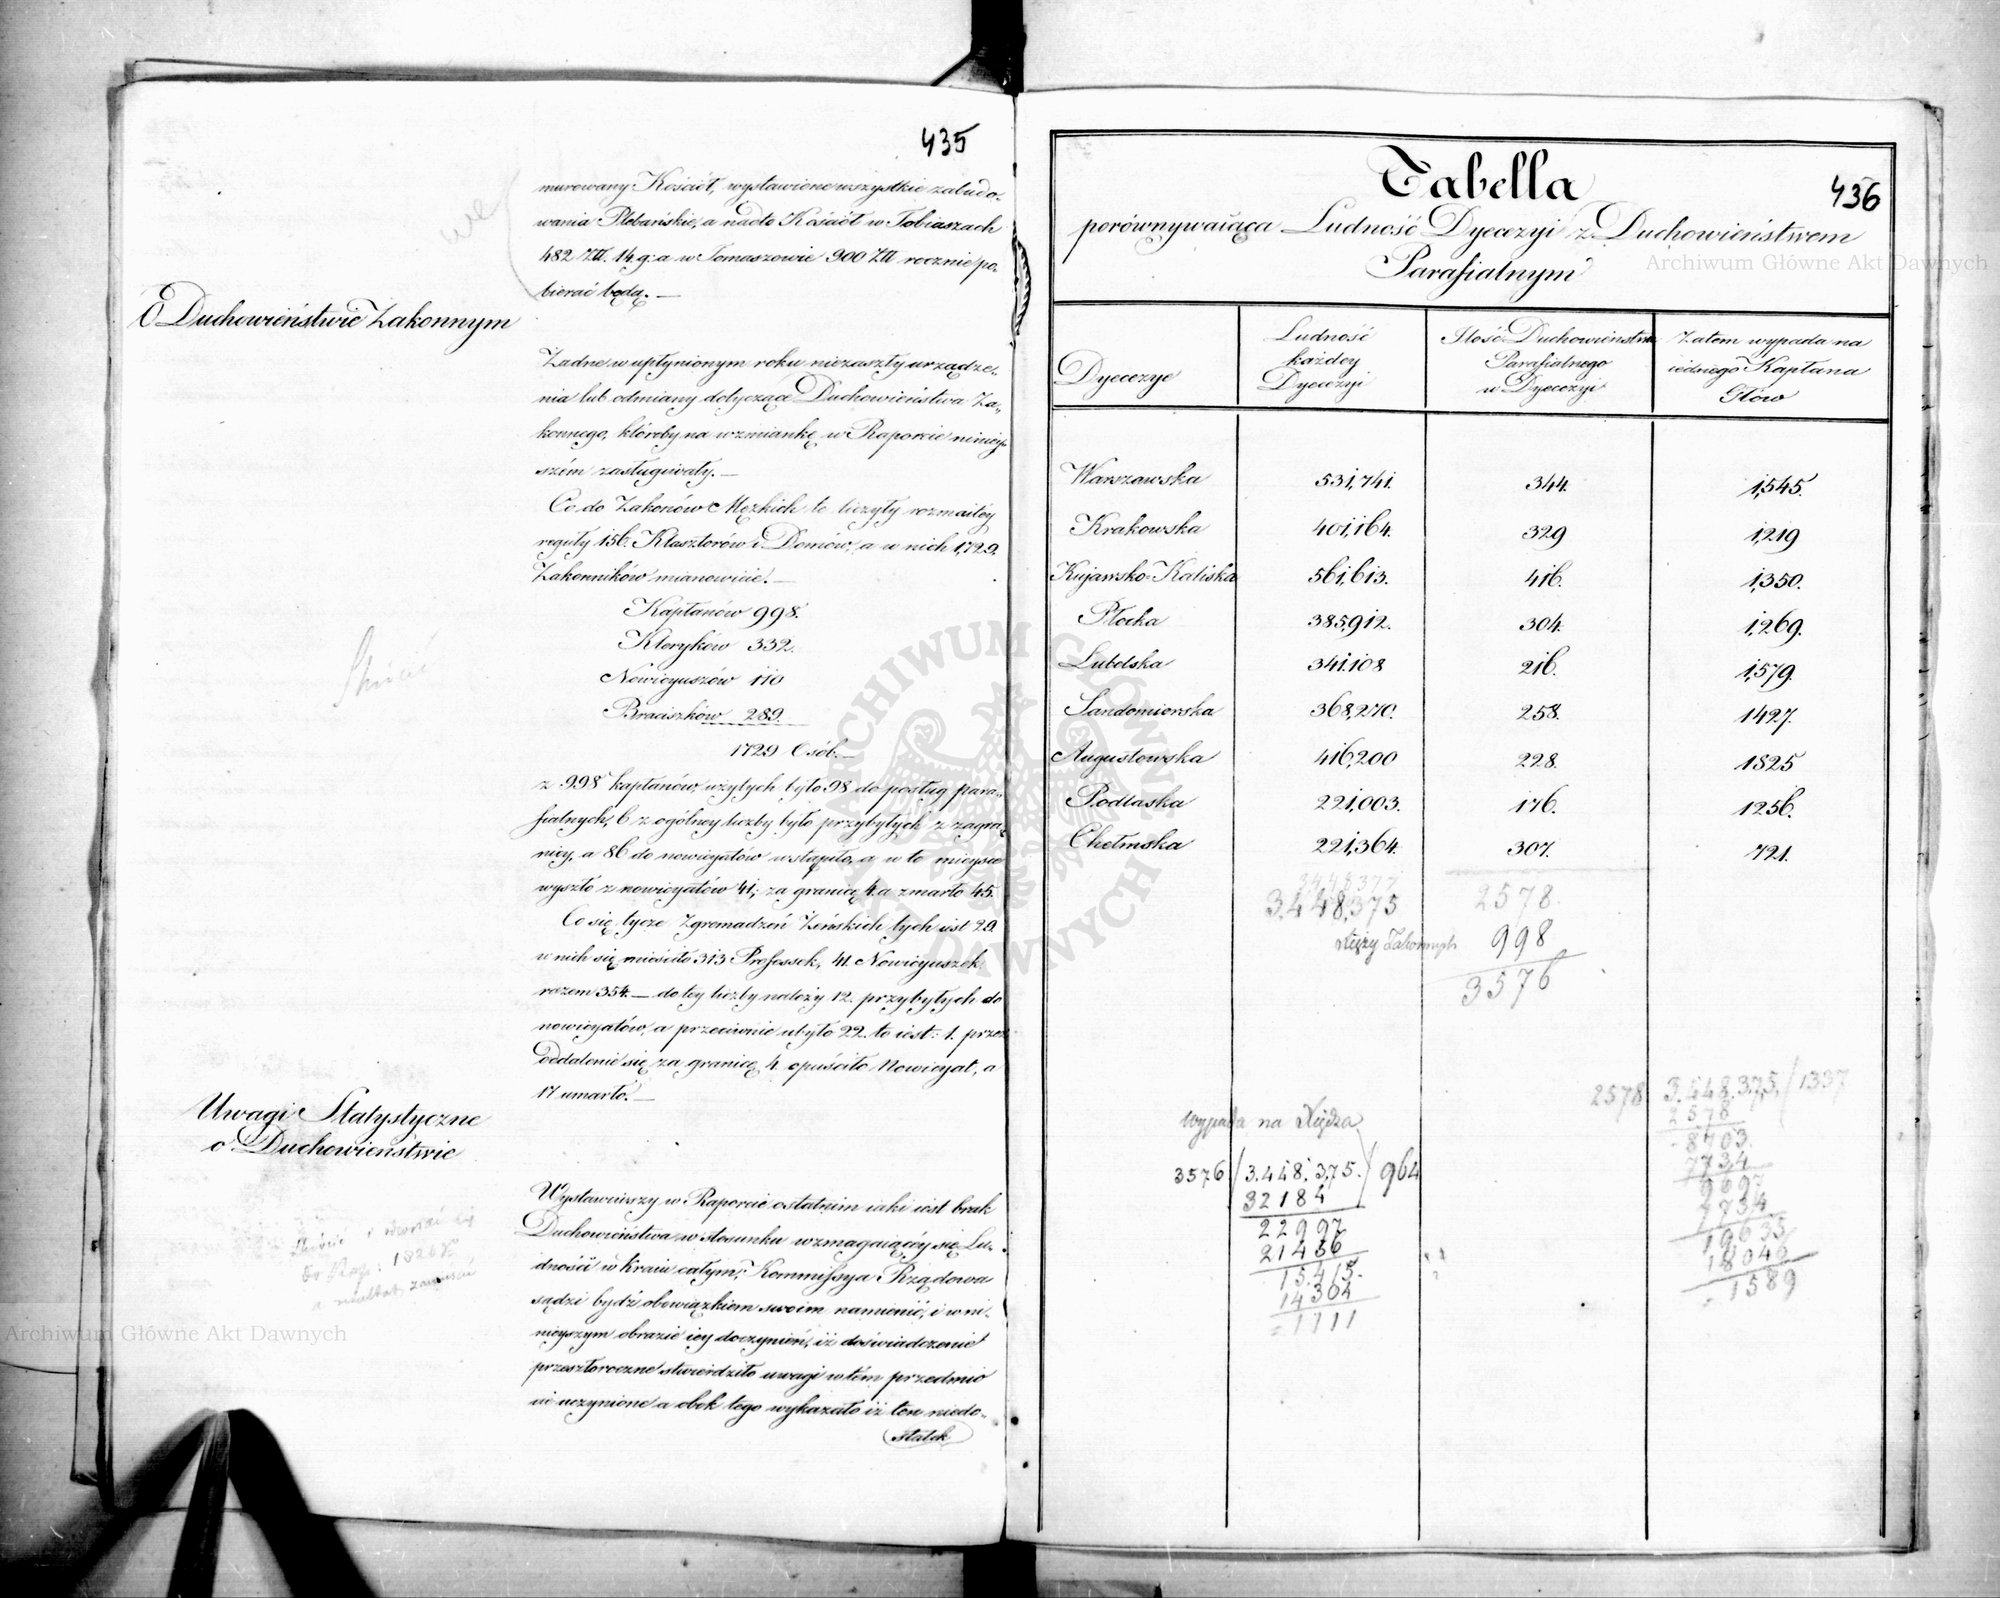 435
murowany Kościół, wystawione wszystkie zabudo-
wania Plebańskie, a nadto Kościół w Tobiaszach
482 Złł. 14. g: a w Tomaszowie 900 Złł rocznie po-
bierać będą. —
O Duchowieństwie Zakonnym
Żadne w upłynionym roku niezaszły urządze-
nia lub odmiany dotyczące Duchowieństwa Za-
konnego, któreby na wzmiankę w Raporcie ninieÿ-
szém zasługiwały. —
Co do Zakonów Męzkich te liczyły rozmaitéy
reguły 156. Klasztorów i Domów, a w nich 1,729.
Zakonników mianowicie. —
Kapłanów 998.
Kleryków 332.
Nowicyuszów 110
Braciszków 289.
1729 Osób. —
z 998 kapłanów użytych było 98 do posług para-
fialnych, 6 z ogólney liczby było przybyłych z zagra-
nicy, a 86 do nowicyatów wstąpiło, a w to mieysce
wyszło z nowicyatów 41; za granicę 4. a zmarło 45.
Co się tycze Zgromadzeń Żeńskich tych iest 29.
w nich się mieściło 313 Professek, 41. Nowicyuszek.
razem 354. — do tey liczby należy 12. przybyłych do
nowicyatów, a przeciwnie ubyło 22. to iest: 1. przez
oddalenie się za granicę 4. opuściło Nowicyat, a
17 umarło. —
Uwagi Statystyczne
o Duchowieństwie
Wystawiwszy w Raporcie ostatnim iaki iest brak
Duchowieństwa w stosunku wzmagaiącéy się Lu-
dności w kraiu całym, Kommissya Rządowa
sądzi bydź obowiązkiem swoim namienić, i w ni-
nieyszym obrazie iey doczynień, iż doświadczenie
przeszłoroczne stwierdziło uwagi w tém przedmio
cie uczynione a obok tego wykazało iż ten niedo-
statek
Tabella
436
porównywaiąca Ludność Dyecezyi z Duchowieństwem
Parafialnym
Dyecezye
Ludność każdey Dyecezyi
Ilość Duchowieństwa Parafialnego w Dyecezyi
Zatem wypada na iednego Kapłana Głów
Warszawska 531,741. 344. 1,545.
Krakowska 401,164. 329 1,219
Kujawsko-Kaliska 561,613. 416. 1,350.
Płocka 385,912. 304. 1,269.
Lubelska 341,108 216. 1,579.
Sandomierska 368,270. 258. 1427.
Augustowska 416,200 228. 1825
Podlaska 221,003. 176. 1256.
Chełmska 221,364. 307. 721.
3,448,377
3,448,375 2578.
Xięży Zakonnych 998
3576
2578 3.448.375. / 1337
2578
8703.
7734
9697
7734.
19635
18046
1589
wypada na Xiędza
3576 / 3.448.375. / 964
32184
22997
21456
15.415.
14304
= 1111
Archiwum Główne Akt Dawnych
Archiwum Główne Akt Dawnych
ARCHIWUM GŁÓWNE AKT DAWNYCH